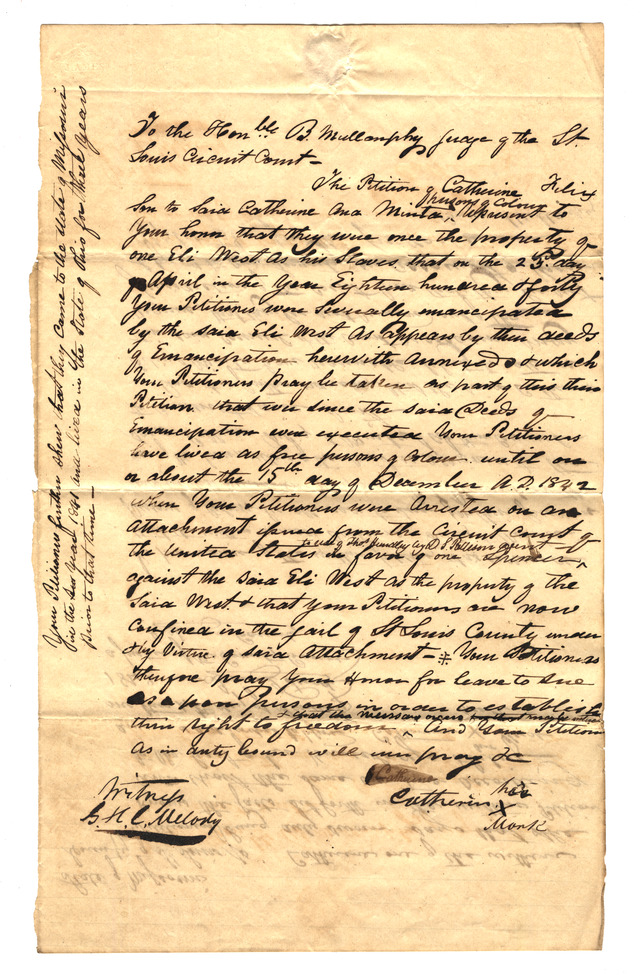 To the Hon.ble B. Mullanphy Judge of the St.
Louis Circuit Court—
The Petition of Catherine Felix
persons of Colour
Son to Said Catherine and Minta, Represent to
Your honor that they were once the property of
one Eli West as his Slaves that on the 25 day
of April in the Year Eighteen hundred & forty
Your Petitioners were Severally emancipated
by the said Eli West as appears by their deeds
of Emancipation herewith Annexed & which
Your Petitioners pray be taken as part of this their
Petition that ever since the said Deeds of
Emancipation were executed Your Petitioners
have lived as free persons of Colour until on
or about the 15th day of December A.D. 1842
when Your Petitioners were Arrested on an
Attachment issued from the Circuit Court of
the United States in favor of one Spencer
against the said Eli West as the property of the
Said West & that your Petitioners are now
confined in the jail of St Louis County under
& by Virtue of said Attachment— * Your Petitioners
therefore pray Your Honor for leave to sue
as poor persons in order to establish
& that the necessary orders
their right to freedom, And Your Petitioners
as in duty bound will ever pray &c
Catherine
Catherin her
X
Mark
Witness
G. H. C. Melody
Your Petitioners further shew that they came to the State of Missouri
in the year 1841 and lived in the State of for three years
prior to that time—